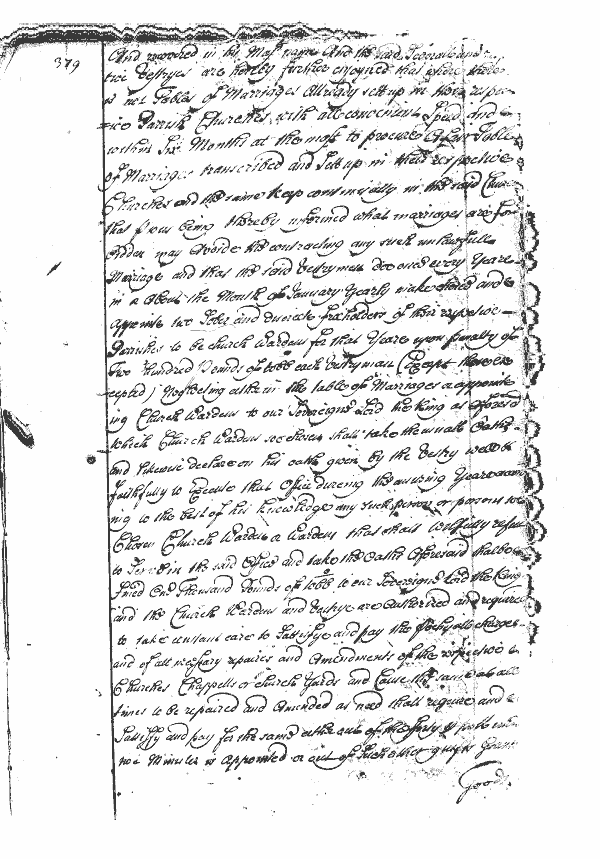 379
And recovered in his Maj^s name And the said Severall and respec
tive Vestryes are hereby further enjoyned that where there
is not Tables of Marriages Already sett up in their respec
tive Parrish Churches, with all convenient Speed and
within Six Months at the most to procure A fair Table
of Marriages transcribed and Sett up in their respective
Churches and the same keep continually in the said
Churches that p^sons being thereby informed what marriages are for
bidden may Avoide the contracting any such unlawfull
Marriage and that the said Vestrymen doe once every Yeare
in or about the Month of January Yearly make choice and
appointe two Sober and discreate freeholders of their respective
Parishes to be Church Wardens for that Yeare upon penalty of
Two Hundred Pounds of tobb^o each Vestryman (Except there ex
cepted) Neglecting either in the table of Marriages or appointe
ing Church Wardens to our Sovereigne Lord the King as aforesd
which Church Wardens soe chosen shall take the usuall Oathes
and likewise declare on his oath given by the Vestry well &
faithfully to Execute that Office dureing the ensuing Yeare
to the best of his knowledge any such person or persons soe
Chosen Church Warden or Wardens that shall willfully refuse
to Serve in the said Office and take the Oathe Aforesaid shall be
fined One Thousand Pounds of tobb^o to our Sovereigne Lord the King
and the Church Wardens and Vestrye are Authorized and required
to take constant care to Sattisfye and pay the charges
and of all necessary repaires and Amendments of the respective
Churches Chappells or Church Yards and Cause the same at all
times to be repaired and Amended as need shall require and
Sattisfy and pay for the same either out of the forty p^r poll
Minister is Appointed or out of such other guifts Grants
Goods